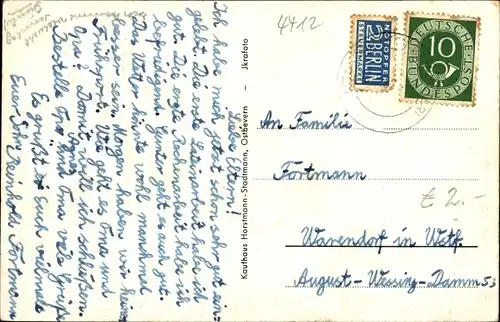 4412
NOTOPFER
2 BERLIN
STEUERMARKE
DEUTSCHE
BUNDESPOST
10
Liebe Eltern!
Ich habe mich jetzt schon sehr gut ein-
gelebt. Die erste Lateinarbeit habe ich
gut. Die erste Rechenarbeit habe ich
befriedigend. Günter geht es auch gut.
Das Wetter könnte wohl manchmal
besser sein. Morgen haben wir keinen
Frühsport. Wie geht es Oma und
Opa? Damit will ich schließen.
Bestelle Opa und Oma viele Grüße
Es grüßt Euch vielmals
Euer Sohn Reinhold Fortmann
Kaufhaus Horstmann-Stadtmann, Ostbevern - Jkrafoto
An Familie
Fortmann
€ 2.-
Warendorf in Westf.
August-Wessing-Damm 53